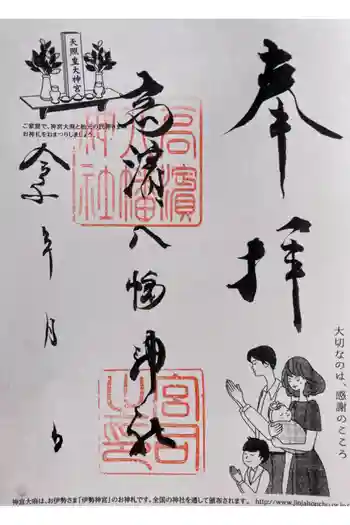 奉拝
大切なのは、感謝のこころ
高濱八幡神社
高濱八幡神社
宮司之印
天照皇大神宮
お神札をおまつりしましょう。
令和 年 月 日
神宮大麻は、お伊勢さま「伊勢神宮」のお神札です。全国の神社を通して頒布されます。